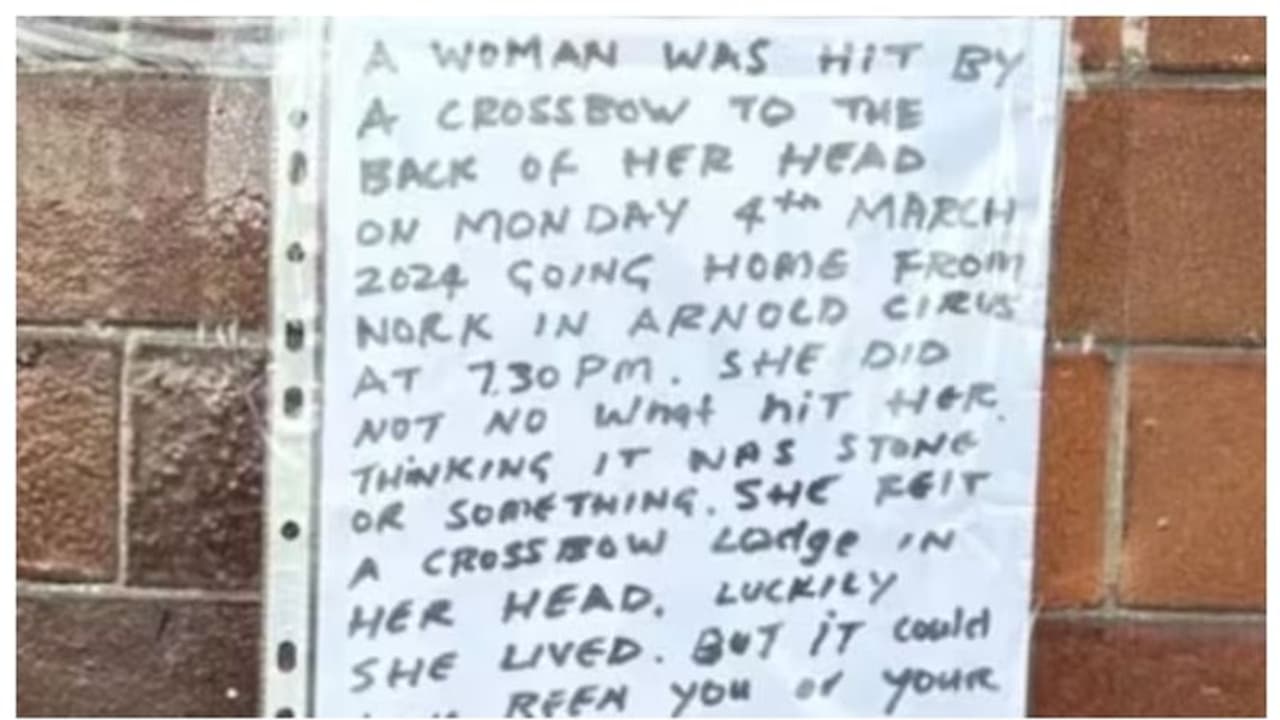 A WOMAN WAS HiT BY
A CROSSBOW TO THE
BACK OF HER HEAD
ON MONDAY 4th MARCH
2024 GOING HOME FROM
WORK IN ARNOLD CIRUS
AT 7.30 Pm. SHE DID
NOT NO What hiT HER.
THiNKING IT WAS STONE
OR SOMETHING. SHE FElT
A CROSSBOW Lodge IN
HER HEAD. LUCKILY
SHE LIVED. BUT iT could
BEEN YOU or YOUR